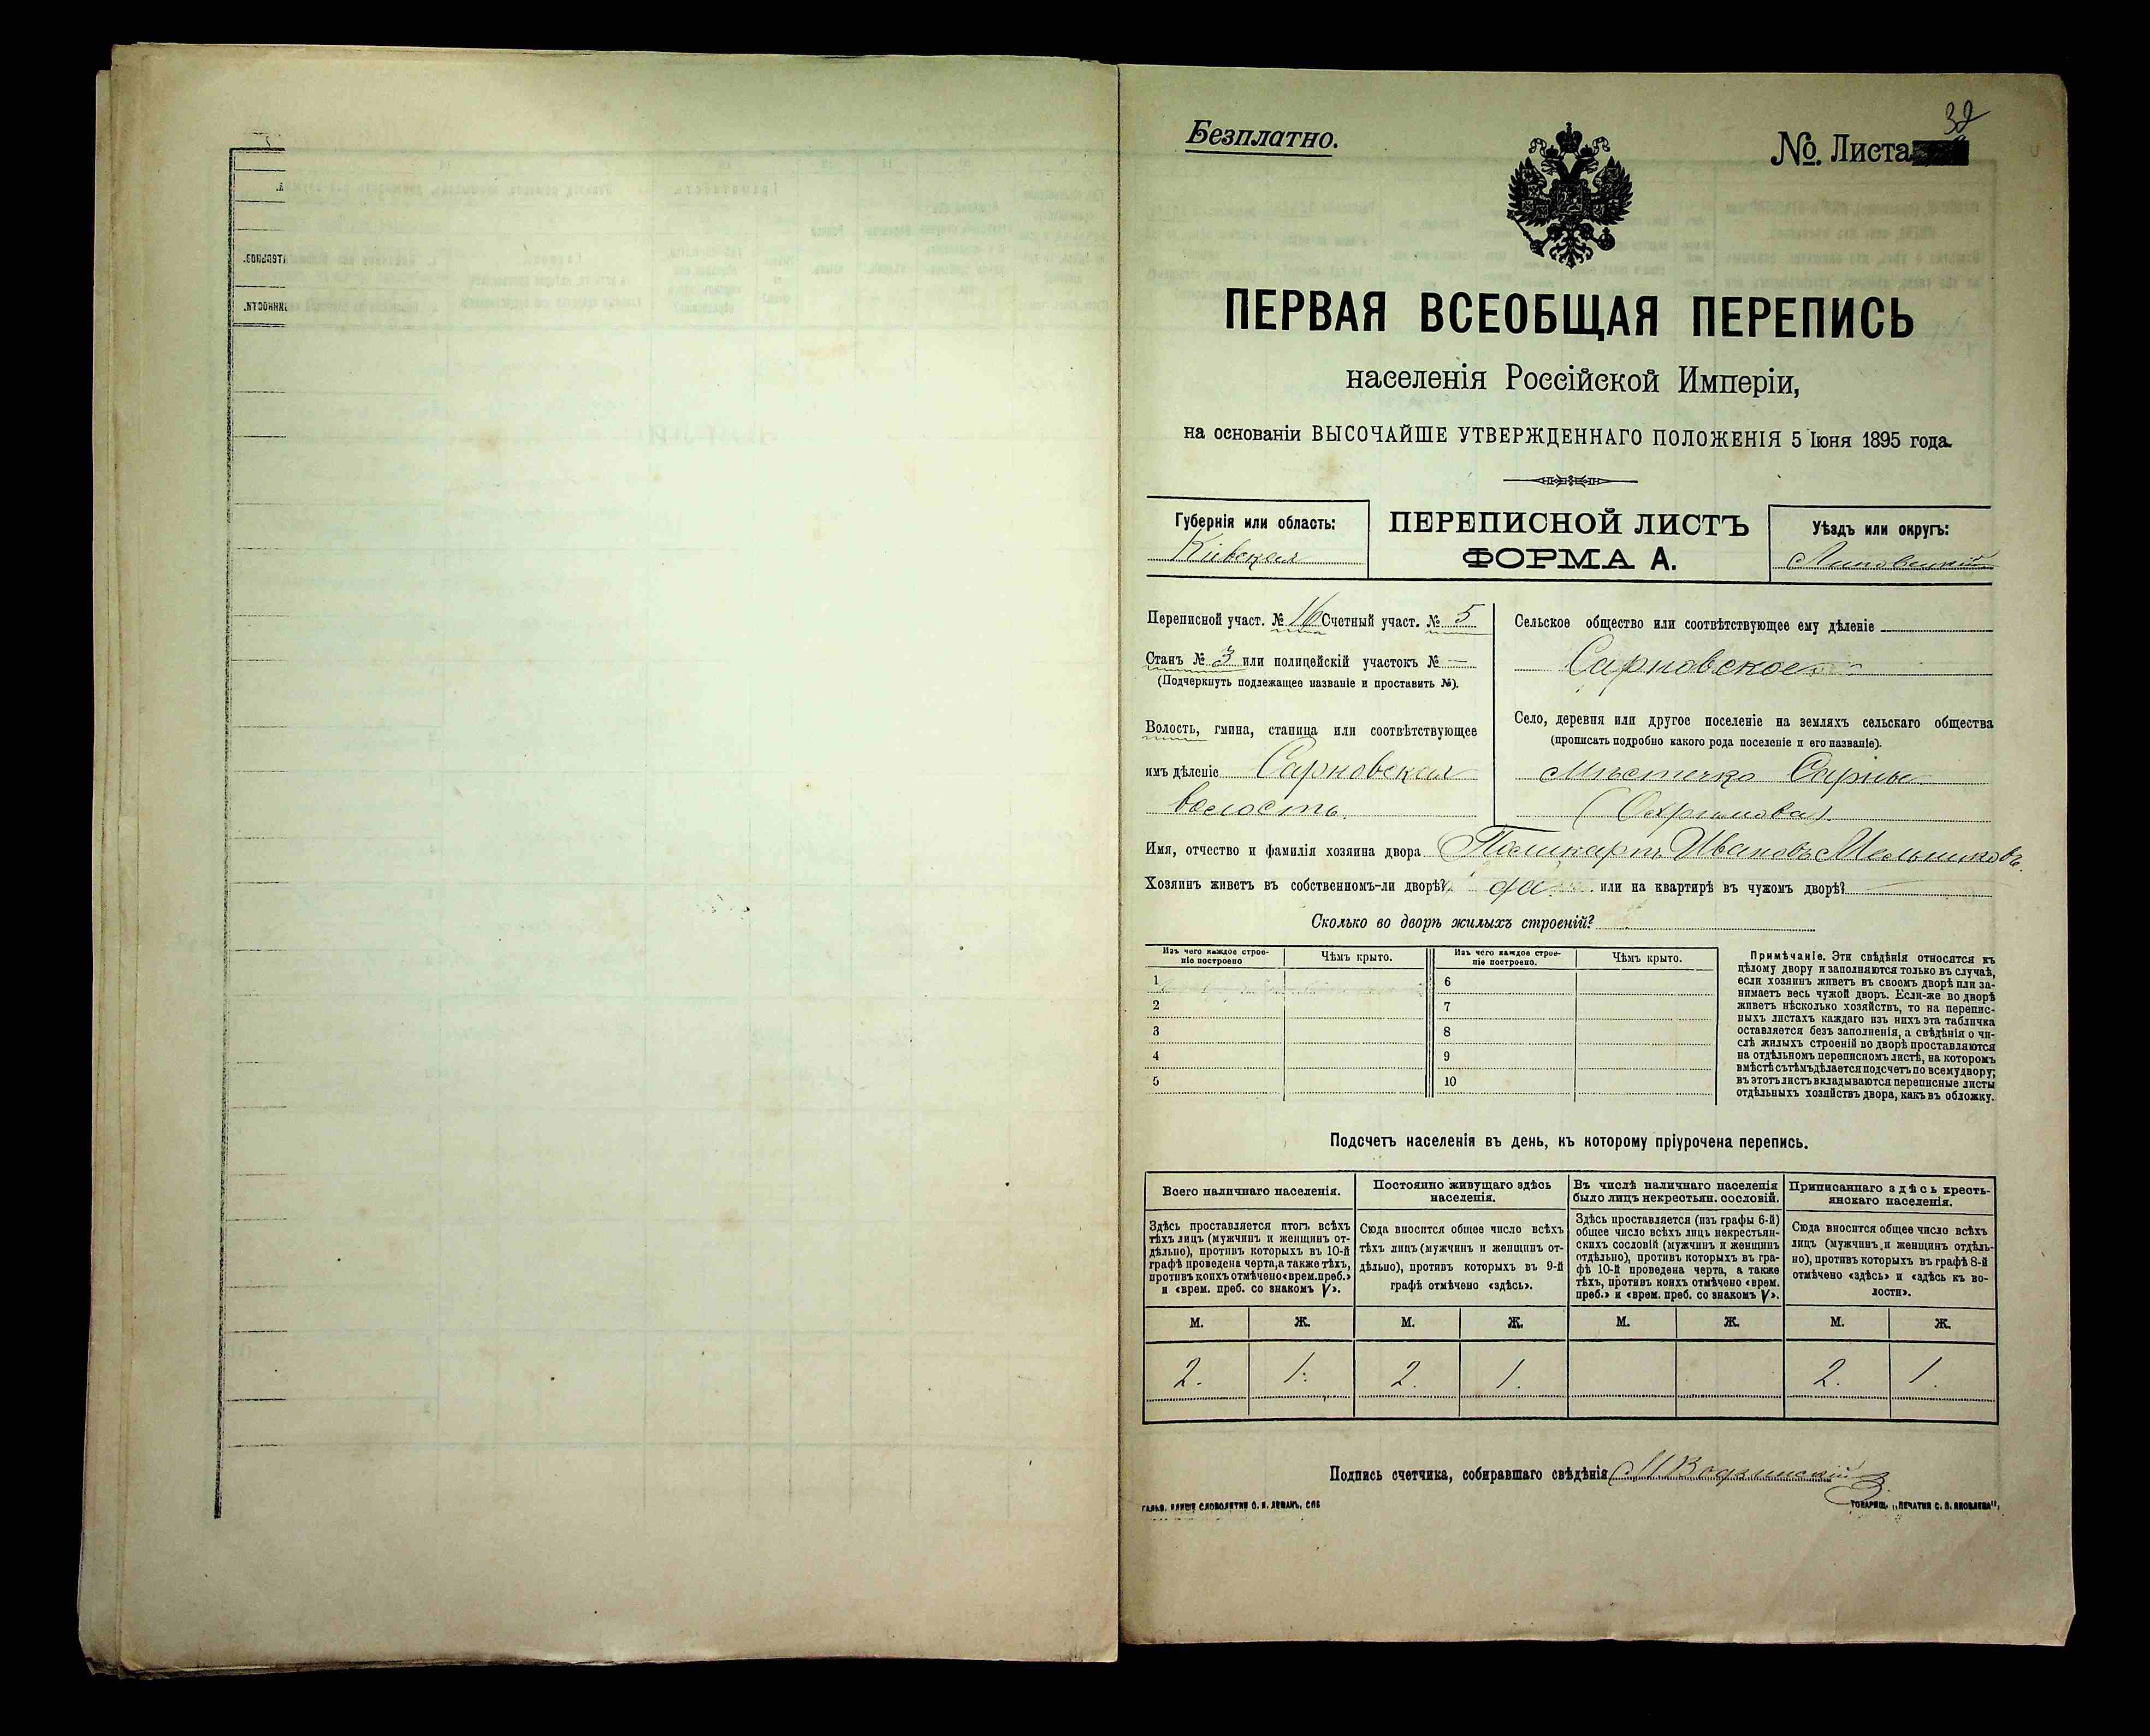 Безплатно.
№ Листа
32
ПЕРВАЯ ВСЕОБЩАЯ ПЕРЕПИСЬ
населенія Россійской Имперіи,
на основаніи ВЫСОЧАЙШЕ УТВЕРЖДЕННАГО ПОЛОЖЕНІЯ 5 Іюня 1895 года
Губернія или область:
Кіевская
ПЕРЕПИСНОЙ ЛИСТЪ
ФОРМА А.
Уѣздъ или округъ:
Липовецкій
Переписной участ. № 16 Счетный участ. № 5
Станъ № 3 или полицейскій участокъ № —
(Подчеркнуть подлежащее названіе и проставить №).
Волость, гмина, станица или соотвѣтствующее
имъ дѣленіе Сарновская
волость.
Сельское общество или соотвѣтствующее ему дѣленіе
Сарновское
Село, деревня или другое поселеніе на земляхъ сельскаго общества
(прописать подробно какого рода поселеніе и его названіе).
Мѣстечко Сарны
(Охримова)
Имя, отчество и фамилія хозяина двора Поликарпъ Ивановъ Мельниковъ.
Хозяинъ живетъ въ собственномъ-ли дворѣ? да или на квартирѣ въ чужомъ дворѣ?
Сколько во дворѣ жилыхъ строеній?
Изъ чего каждое строе-
ніе построено
Чѣмъ крыто.
Изъ чего каждое строе-
ніе построено.
Чѣмъ крыто.
1 6
2 7
3 8
4 9
5 10
Примѣчаніе. Эти свѣдѣнія относятся къ
цѣлому двору и заполняются только въ случаѣ,
если хозяинъ живетъ въ своемъ дворѣ или за-
нимаетъ весь чужой дворъ. Если-же во дворѣ
живетъ нѣсколько хозяйствъ, то на перепис-
ныхъ листахъ каждаго изъ нихъ эта табличка
оставляется безъ заполненія, а свѣдѣнія о чи-
слѣ жилыхъ строеній во дворѣ проставляются
на отдѣльномъ переписномъ листѣ, на которомъ
вмѣстѣ съ тѣмъ дѣлается подсчетъ по всему двору;
въ этотъ листъ вкладываются переписные листы
отдѣльныхъ хозяйствъ двора, какъ въ обложку.
Подсчетъ населенія въ день, къ которому пріурочена перепись.
Всего наличнаго населенія.
Здѣсь проставляется итогъ всѣхъ
тѣхъ лицъ (мужчинъ и женщинъ от-
дѣльно), противъ которыхъ въ 10-й
графѣ проведена черта, а также тѣхъ,
противъ коихъ отмѣчено «врем. преб.»
и «врем. преб. со знакомъ V».
Постоянно живущаго здѣсь
населенія.
Сюда вносится общее число всѣхъ
тѣхъ лицъ (мужчинъ и женщинъ от-
дѣльно), противъ которыхъ въ 9-й
графѣ отмѣчено «здѣсь».
Въ числѣ наличнаго населенія
было лицъ некрестьян. сословій.
Здѣсь проставляется (изъ графы 6-й)
общее число всѣхъ лицъ некрестьян-
скихъ сословій (мужчинъ и женщинъ
отдѣльно), противъ которыхъ въ гра-
фѣ 10-й проведена черта, а также
тѣхъ, противъ коихъ отмѣчено «врем.
преб.» и «врем. преб. со знакомъ V».
Приписаннаго здѣсь кресть-
янскаго населенія.
Сюда вносится общее число всѣхъ
лицъ (мужчинъ и женщинъ отдѣль-
но), противъ которыхъ въ графѣ 8-й
отмѣчено «здѣсь» и «здѣсь къ во-
лости».
М. Ж. М. Ж. М. Ж. М. Ж.
2. 1. 2. 1. 2. 1.
Подпись счетчика, собиравшаго свѣдѣнія
ГАЛЬВ. КЛИШЕ СЛОВОЛИТНИ О. И. ЛЕМАНЪ, СПБ
ТОВАРИЩ. „ПЕЧАТНЯ С. П. ЯКОВЛЕВА",